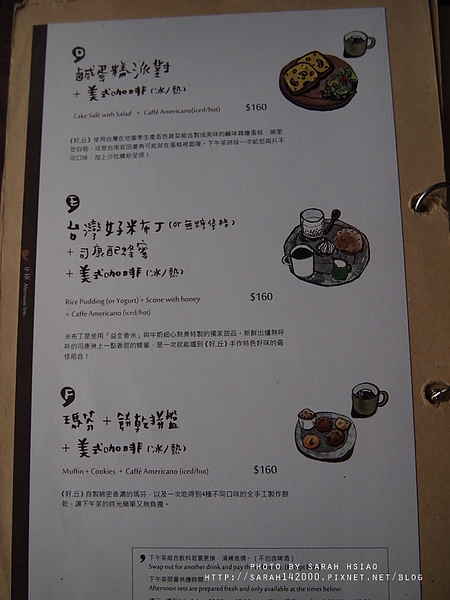 D
鹹蛋糕派對
+ 美式咖啡(冰/熱)
Cake Salé with Salad + Caffé Americano(iced/hot)
$160
《好,丘》使用台灣在地當季生產各色蔬菜組合製成美味的鹹味雜燴蛋糕,
不同口味,加上沙拉繽紛呈現!
E
台灣好米布丁(or 無糖優格)
+ 司康配蜂蜜
+ 美式咖啡(冰/熱)
Rice Pudding (or Yogurt) + Scone with honey
+ Caffe Americano (iced/hot)
$160
米布丁是使用「益全香米」與牛奶細心熬煮特製的獨家甜品。新鮮出爐熱呼
呼的司康淋上一點香甜的蜂蜜,是一次就能嚐到《好,丘》手作特色好味的最
佳組合!
F
瑪芬 + 餅乾拼盤
+ 美式咖啡(冰/熱)
Muffin + Cookies + Caffé Americano (iced/hot)
$160
《好,丘》自製綿密香濃的瑪芬,以及一次吃得到4種不同口味的全手工製作餅
乾,讓下午茶的時光簡單又無負擔。
午茶 Afternoon Sets
下午茶組合飲料若要更換,須補差價。(不包含啤酒)
Swap out for another drink and pay the
下午茶限量供應時間
Afternoon sets are prepared fresh and only available at the times below:
PHOTO BY SARAH HSIAO
HTTP://SARAH142000.PIXNET.NET/BLOG